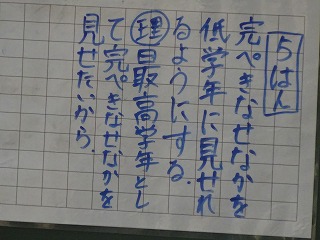 5はん
完ぺきなせなかを
低学年に見せれ
るようにする。
理最高学年とし
て完ぺきなせなかを
見せたいから。